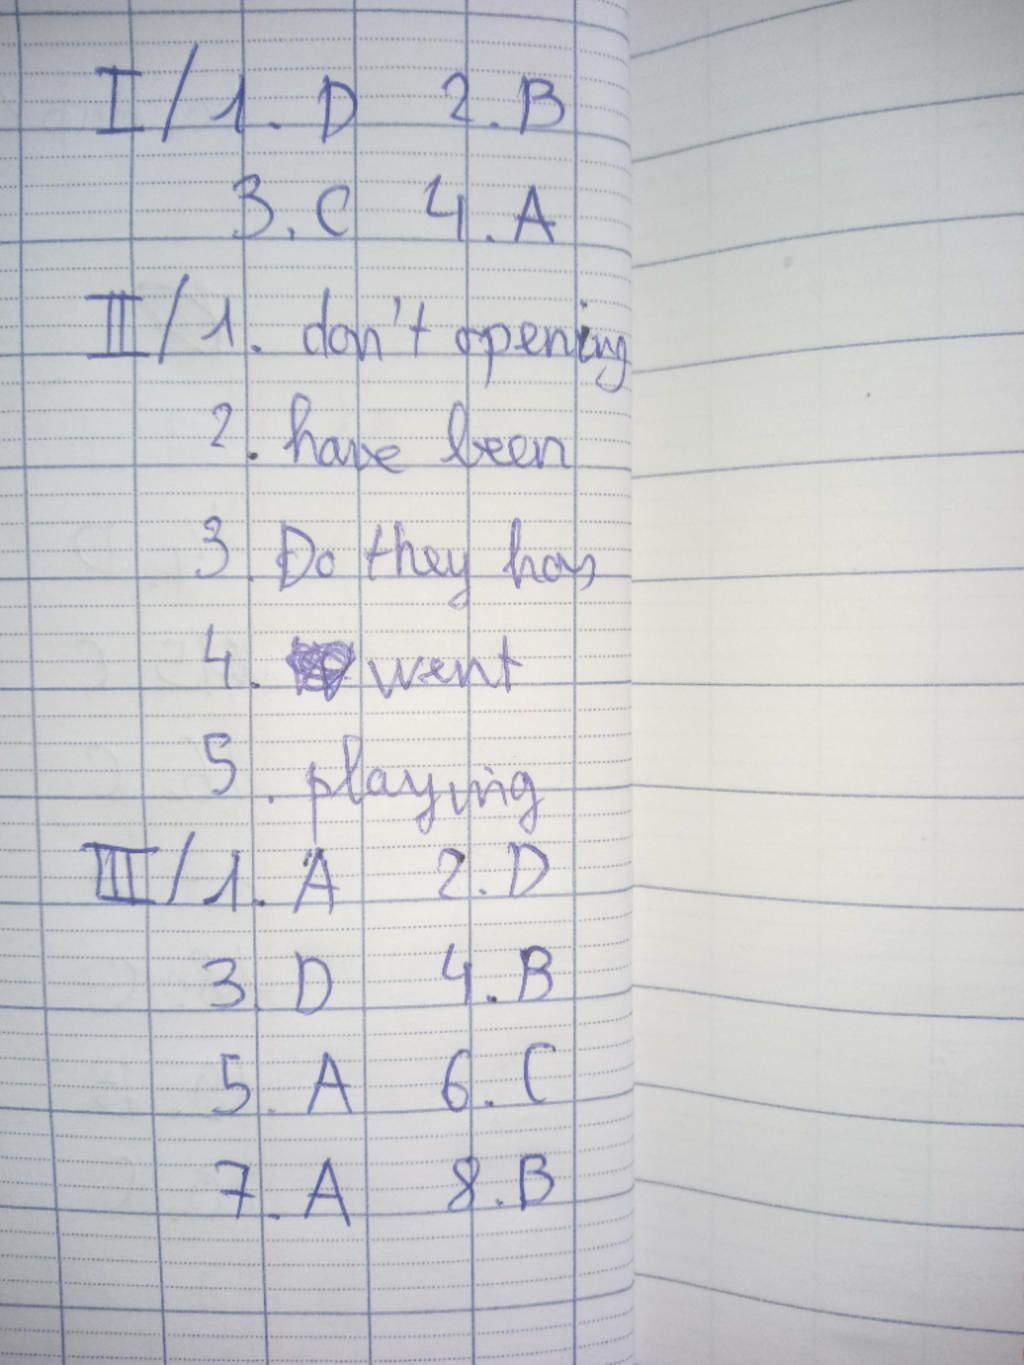 I/1. D 2. B
3. C 4. A
II/1. don't opening
2. have been
3. Do they has
4. went
5. playing
III/1. A 2. D
3. D 4. B
5. A 6. C
7. A 8. B